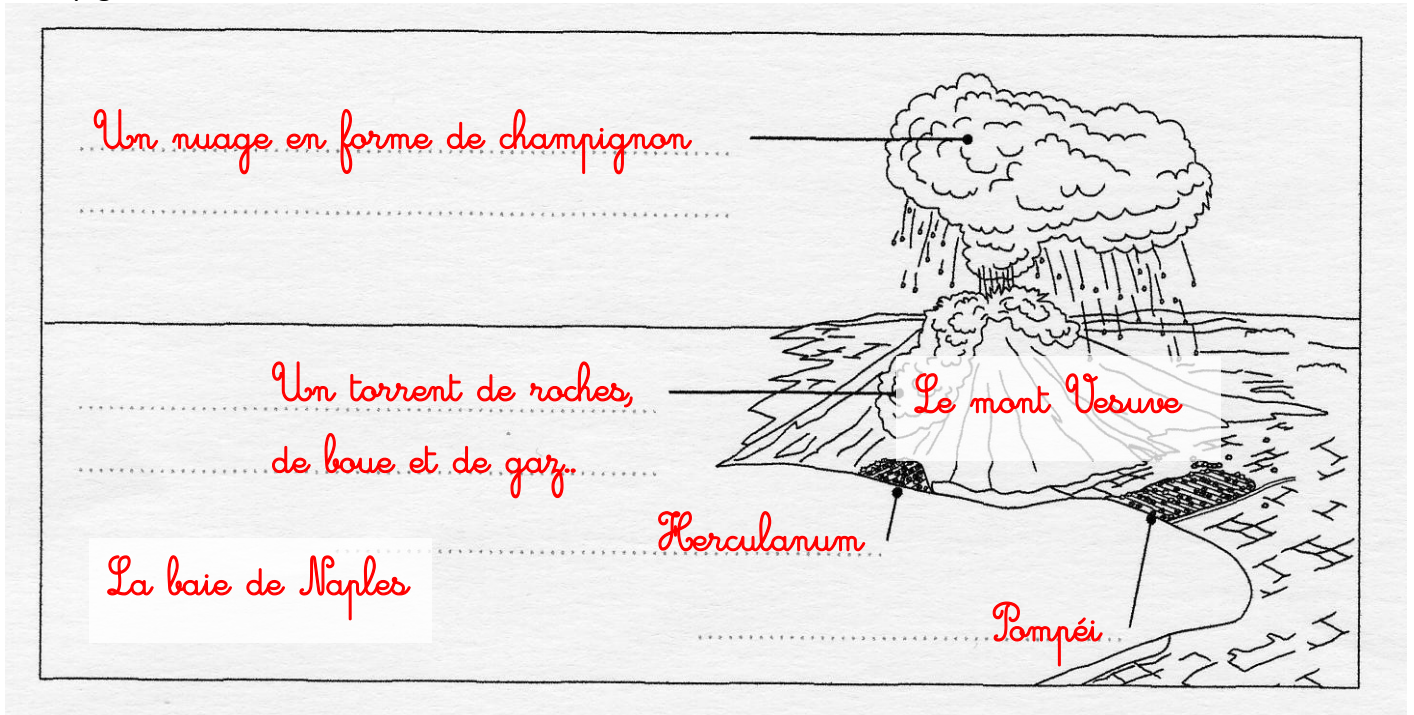 Un nuage en forme de champignon
Un torrent de roches,
de boue et de gaz..
Le mont Vesuve
Herculanum
La baie de Naples
Pompéi